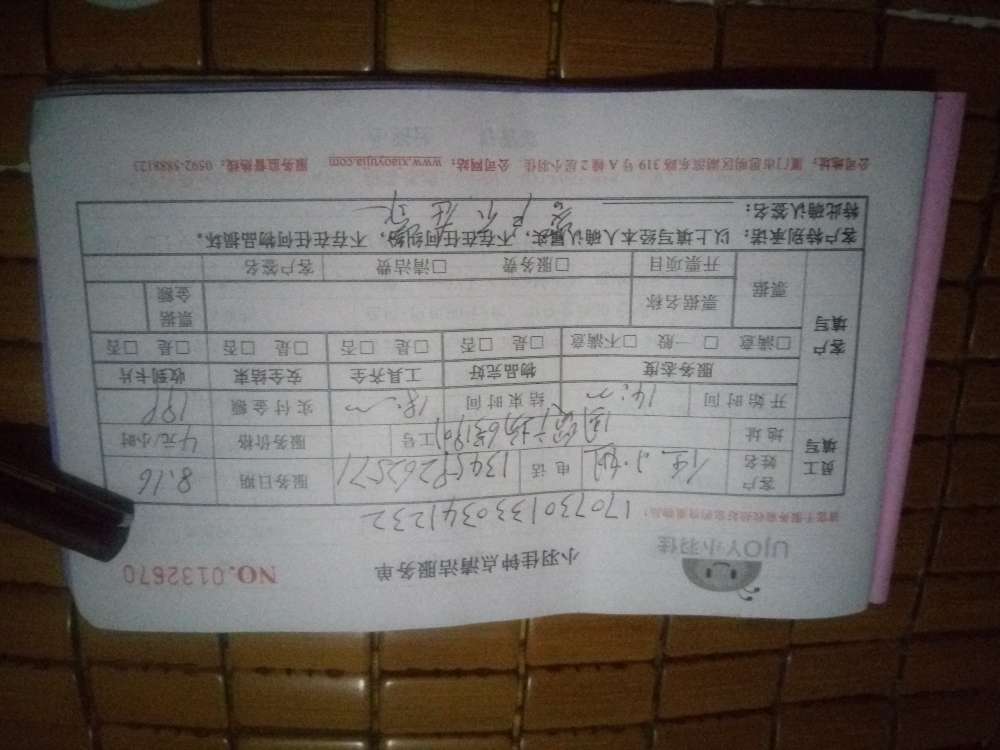 UJOY小羽佳
小羽佳钟点清洁服务单
NO.0132670
请雇主服务前收拾好您的贵重物品！
1707301330341232
员工填写
客户姓名
电话
13459262571
服务日期
8.16
地址
工号
服务价格
4元/小时
开始时间
14:00
结束时间
18:00
实付金额
客户填写
服务态度
物品完好
工具齐全
安全结束
收到卡片
□满意 □一般 □不满意
□是 □否
□是 □否
□是 □否
□是 □否
票据
票据名称
票据金额
开票项目
□服务费 □清洁费
客户签名
客户特别承诺：以上填写经本人确认属实，不存在任何纠纷，不存在任何物品损坏。
特此确认签名：
客户不在家
公司地址：厦门市思明区湖滨东路 319 号 A 幢 2 层小羽佳 公司网站：www.xiaoyujia.com 服务监督热线：0592-5888123